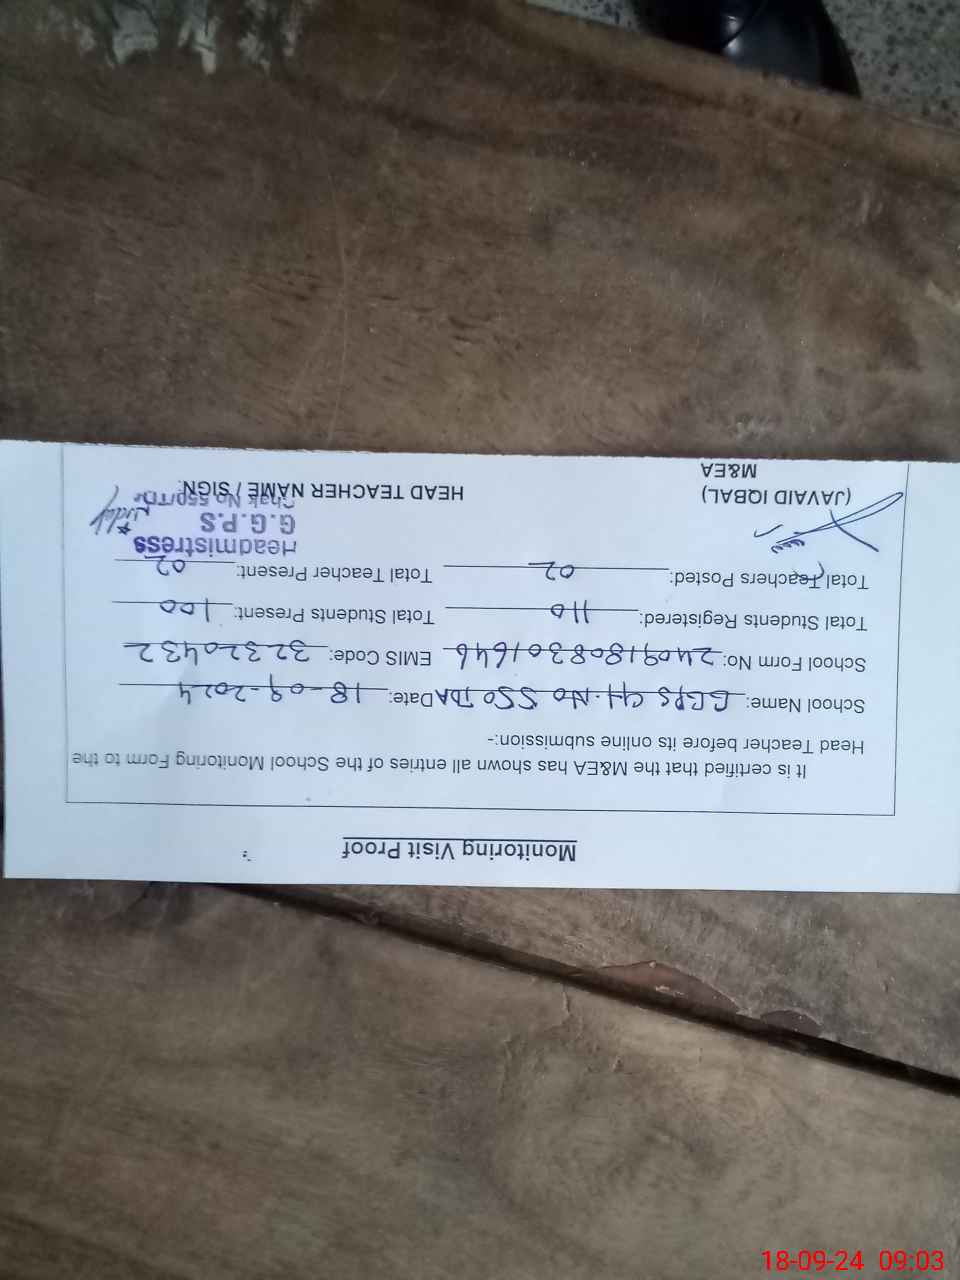 Monitoring Visit Proof
It is certified that the M&EA has shown all entries of the School Monitoring Form to the
Head Teacher before its online submission:-
School Name: GGPS CH. No 550 TDA Date: 18-09-2024
School Form No: 2409180830 1646 EMIS Code: 32320432
Total Students Registered: 110 Total Students Present: 100
Total Teachers Posted: 02 Total Teacher Present: 02
Headmistress
G.G.P.S
Chak No 550/TDA
(JAVAID IQBAL) HEAD TEACHER NAME / SIGN:
M&EA
18-09-24 09:03